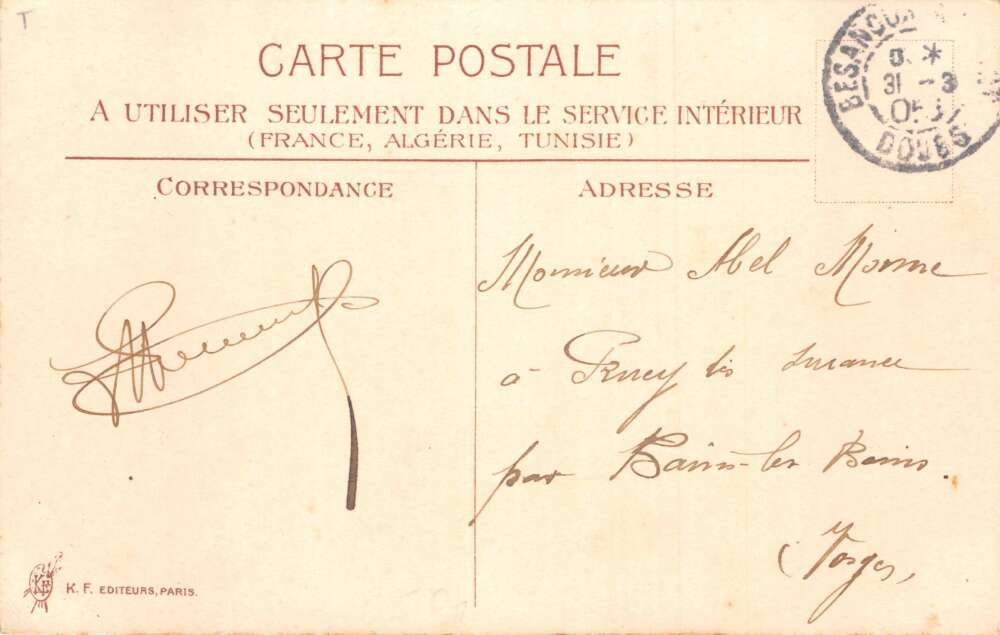 T
CARTE POSTALE
A UTILISER SEULEMENT DANS LE SERVICE INTÉRIEUR
(FRANCE, ALGÉRIE, TUNISIE)
CORRESPONDANCE
ADRESSE
BESANÇON
31 - 3
05
DOUBS
Monsieur Abel
à Gruey les Surance
par Bains-les Bains.
(Vosges,
KF
K. F. EDITEURS, PARIS.